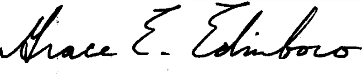 Grace E. Edinboro